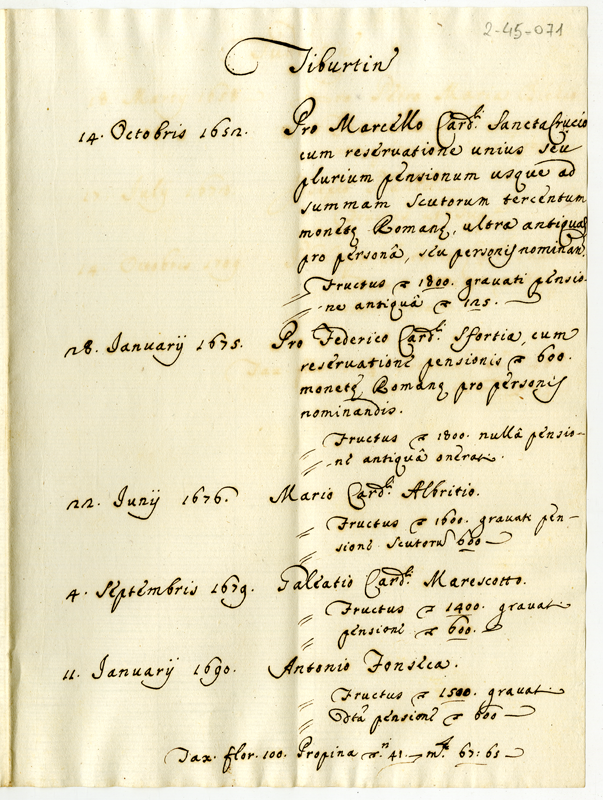 2-45-071
Tiburtin
14. Octobris 1652. Pro Marcello Card. SanctaCrucio
cum reservatione unius seu
plurium pensionum usque ad
summam scutorum tercentum
monetę Romanę, ultra antiquas
pro personâ, seu personis nominan.
Fructus 1800. gravati pensio-
ne antiquâ 125.
28. Januarij 1675. Pro Federico Card. Sfortia, cum
reservatione pensionis 600.
monetę Romanę pro personis
nominandis.
Fructus 1800. nullâ pensio-
ne antiquâ onerat.
22. Junij 1676. Mario Card. Albritio.
Fructus 1600. gravati pen-
sione scutorum 600
4. Septembris 1679. Galeatio Card. Marescotto.
Fructus 1400. gravat
pensione 600.
11. Januarij 1690. Antonio Fonseca.
Fructus 1500. gravat
dta pensione 600
Tax. flor. 100. Propina 41 67: 65